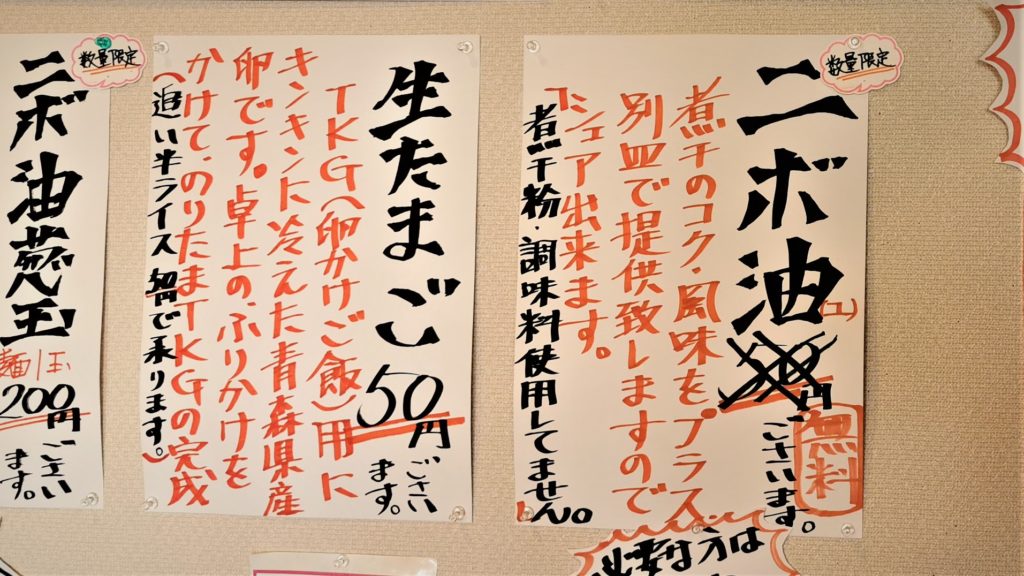 数量限定
ニボ油(ユ)
円ございます。
無料
煮干のコク・風味をプラス
別皿で提供致しますので
シェア出来ます。
煮干粉・調味料使用してません。
必要な方は
生たまご 50円ございます。
TKG(卵かけご飯)用に
キンキンに冷えた青森県産
卵です。卓上の、ふりかけを
かけて、のりたまTKGの完成
(追い半ライス 50円で承ります。)
数量限定
ニボ油
玉
麺1玉
200円ございます。